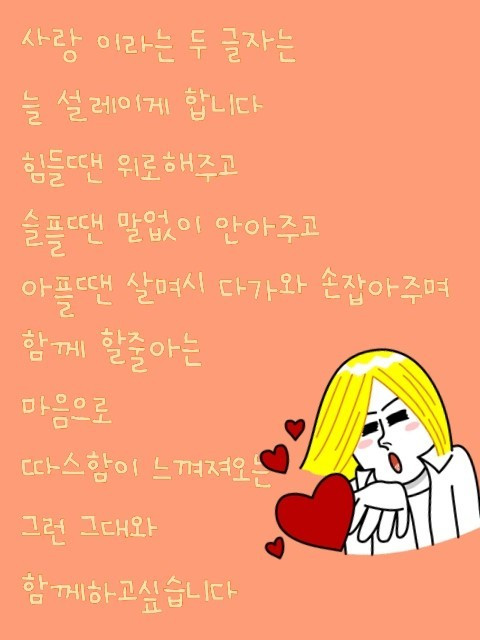 사랑 이라는 두 글자는
늘 설레이게 합니다
힘들땐 위로해주고
슬플땐 말없이 안아주고
아플땐 살며시 다가와 손잡아주며
함께 할줄아는
마음으로
따스함이 느껴져오는
그런 그대와
함께하고싶습니다